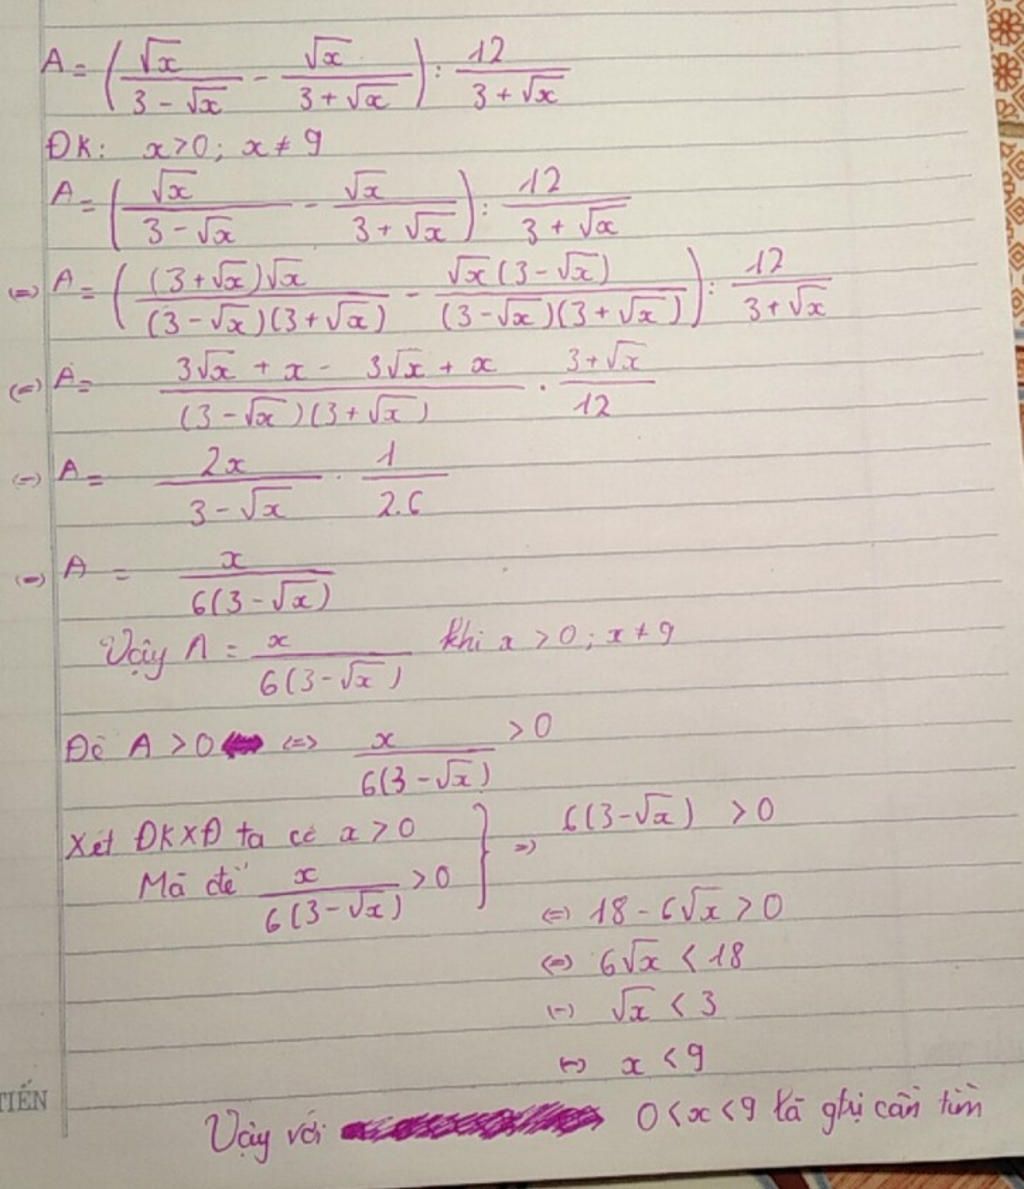 A = (√x/(3 - √x) - √x/(3 + √x)) : 12/(3 + √x)
ĐK: x > 0; x ≠ 9
A = (√x/(3 - √x) - √x/(3 + √x)) : 12/(3 + √x)
(=) A = ((3 + √x)√x/((3 - √x)(3 + √x)) - √x(3 - √x)/((3 - √x)(3 + √x))) : 12/(3 + √x)
(=) A = (3√x + x - 3√x + x)/((3 - √x)(3 + √x)) · (3 + √x)/12
(=) A = 2x/(3 - √x) · 1/2.6
(=) A = x/(6(3 - √x))
Vậy A = x/(6(3 - √x)) khi x > 0; x ≠ 9
Để A > 0 (=) x/(6(3 - √x)) > 0
Xét ĐKXĐ ta có x > 0
Mà để x/(6(3 - √x)) > 0 } => 6(3 - √x) > 0
(=) 18 - 6√x > 0
(=) 6√x < 18
(=) √x < 3
(=) x < 9
TIẾN
Vậy với 0 < x < 9 là gtrị cần tìm